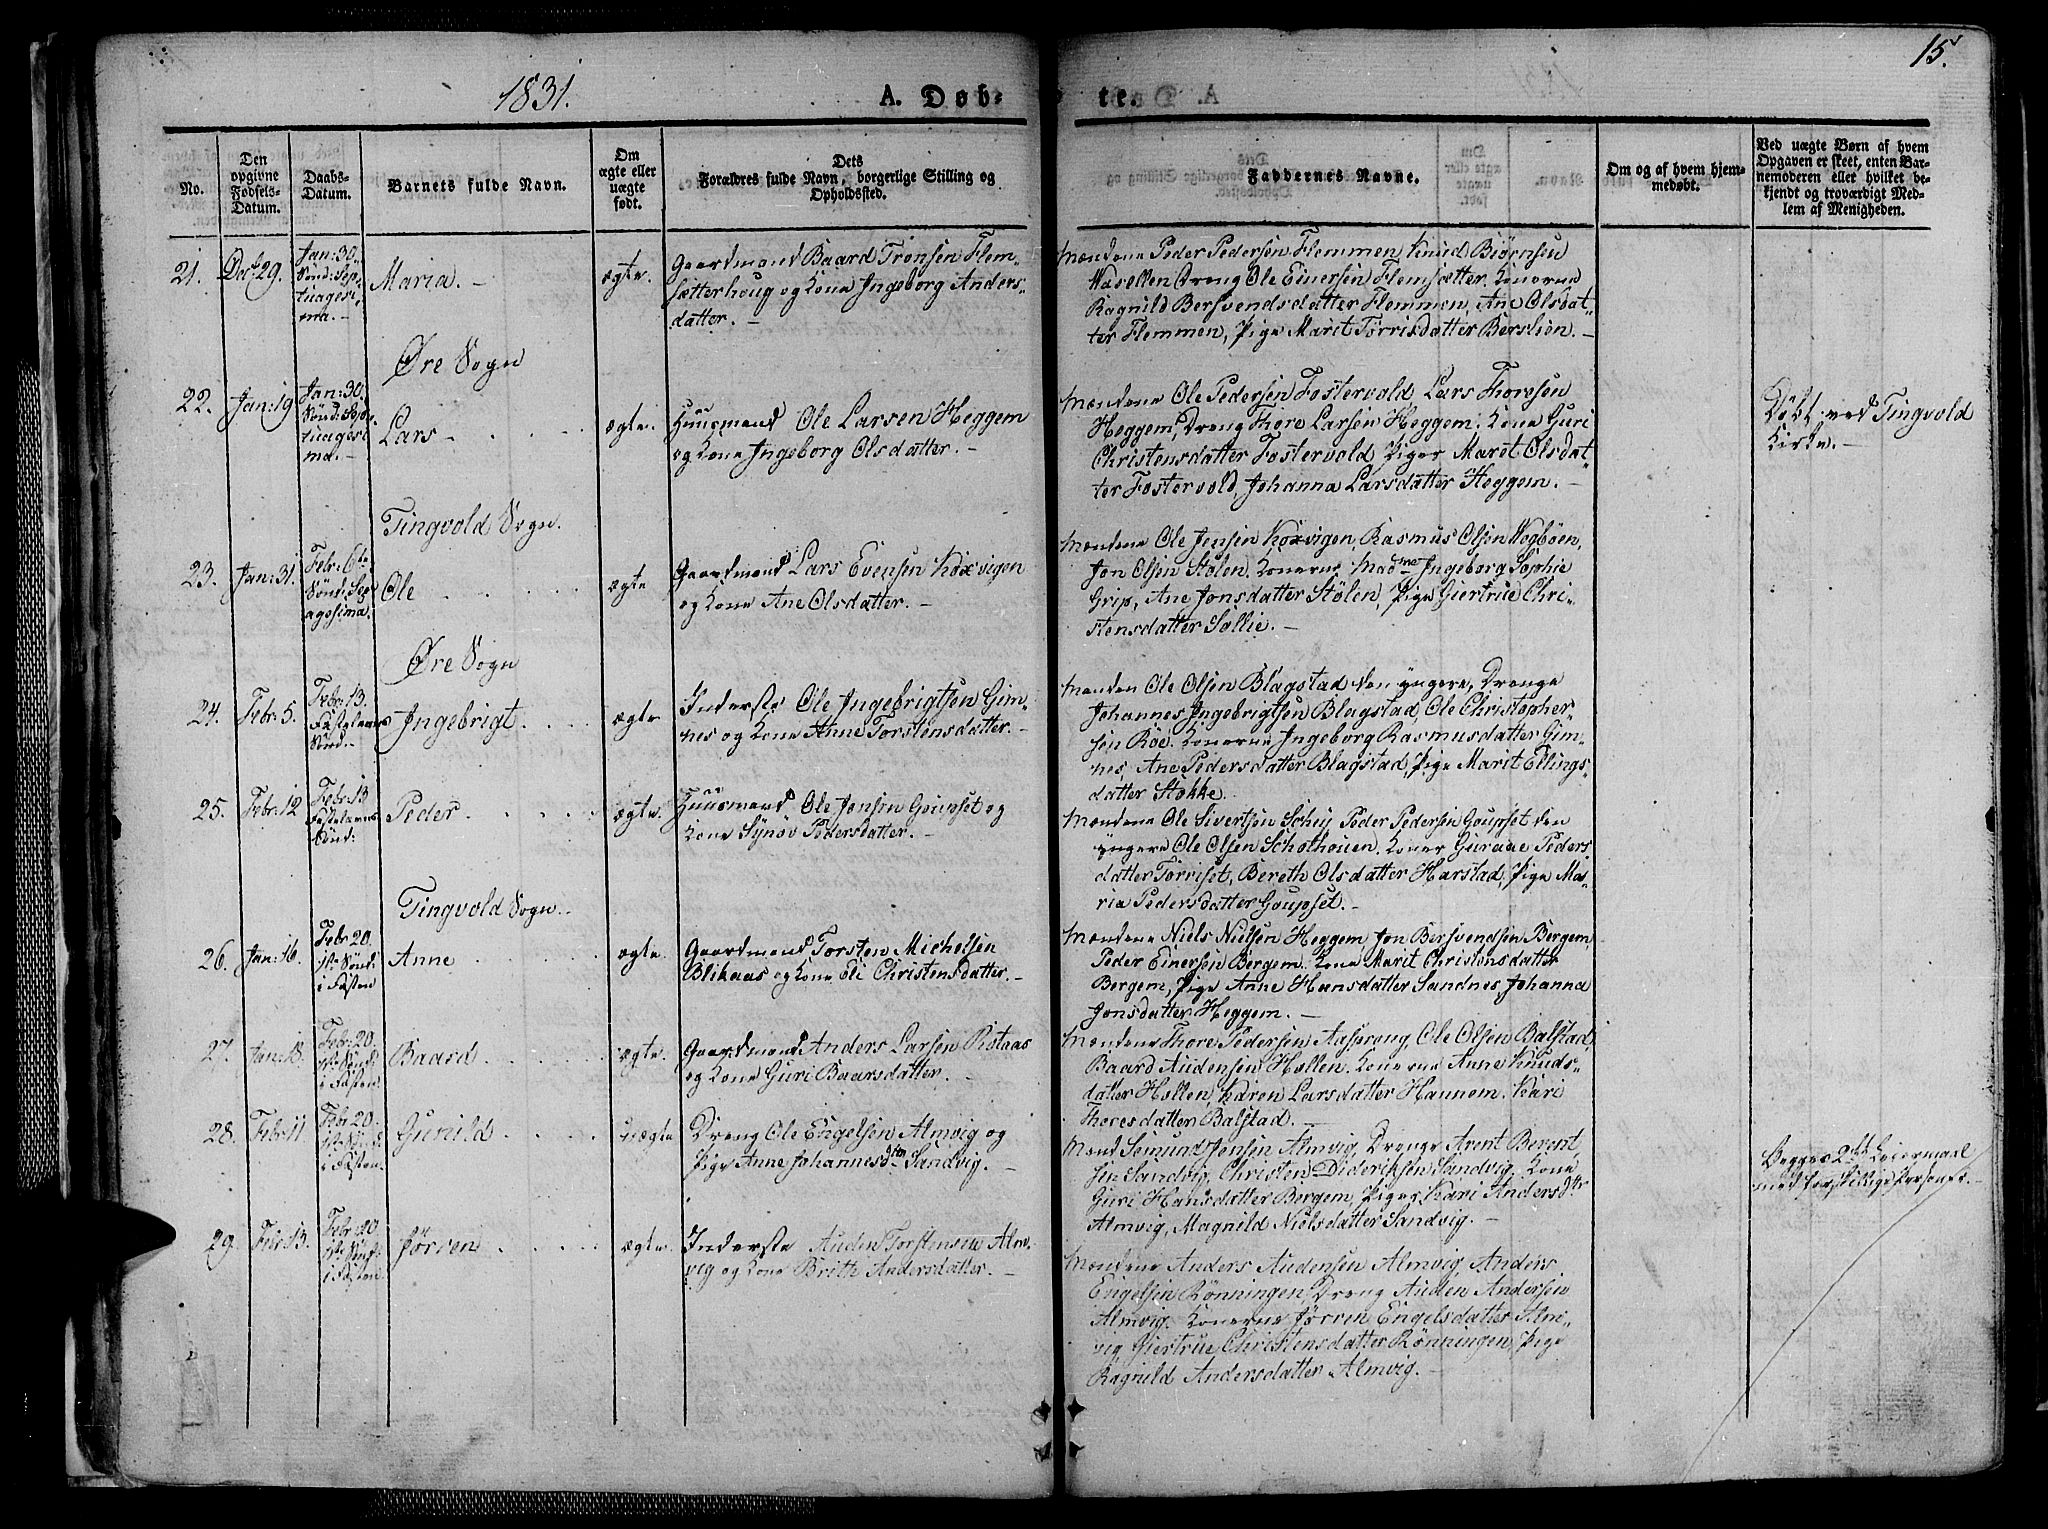 1831.
A. Døb-
te.
15.
No.
Den
opgivne
Fødsels-
Datum.
Daabs-
Datum.
Barnets fulde Navn.
Om
ægte eller
uægte
født.
Dets
Forældres fulde Navn, borgerlige Stilling og
Opholdssted.
Faddernes Navne.
Om og af hvem hjem-
medøbt.
Ved uægte Børn af hvem
Opgaven er skeet, enten Bar-
nemoderen eller hvilket be-
kjendt og troværdigt Med-
lem af Menigheden.
21. Decb. 29.
Jan: 30.
Sönd: Sep-
tuagesi-
ma. -
Maria. -
ægte.
Gaardmand Baard Trönsen Flem-
sætterhoug og Kone Ingeborg Anders-
datter. -
Mændene Peder Pedersen Flemmen, Knud Biörnsen
Wasellen Dreng Ole Einersen Flemsætter. Konerne
Ragnild Bersvendsdatter Flemmen, Ane Olsdat-
ter Flemmen, Pige Marit Torrisdatter Berslien. -
Øre Sogn
22. Jan: 19
Jan: 30.
Sönd: Sep-
tuagesi
ma. -
Lars -
ægte.
Huusmand Ole Larsen Heggem
og Kone Ingeborg Olsdatter. -
Mændene Ole Pedersen Fostervold, Lars Thoresen
Heggem, Dreng Thore Larsen Heggem. Kone Guri
Christensdatter Fostervold, Piger Marit Olsdat-
ter Fostervold, Johanna Larsdatter Heggem. -
Döbt ved Tingvold
Kirke. -
Tingvold Sogn.
23. Jan: 31.
Febr: 6te
Sönd: Sex
agesima.
Ole
ægte
Gaardmand Lars Evensen Koxvigen
og Kone Ane Olsdatter. -
Mændene Ole Jensen Koxvigen, Rasmus Olsen Wegböen,
Jon Olsen Stölen, Konerne Madme Ingeborg Sophie
Grip, Ane Jonsdatter Stölen, Pige Giertrue Chri-
stensdatter Sollie. -
Øre Sogn
24. Febr: 5.
Febr: 13.
Fastelavns
Sönd. -
Ingebrigt.
ægte
Inderste Ole Ingebrigtsen Gim-
nes og Kone Anne Torstensdatter. -
Manden Ole Olsen Blagstad den yngere, Drenge
Johannes Ingebrigtsen Blagstad, Ole Christopher-
sen Röe. Konerne Ingeborg Rasmusdatter Gim-
nes, Ane Pedersdatter Blagstad, Pige Marit Ellings-
datter Stokke.
25. Febr: 12
Febr: 13
Fastelavns
Sönd:
Peder
ægte.
Huusmand Ole Jonsen Goupset og
Kone Synöv Pedersdatter. -
Mændene Ole Sivertsen Schey, Peder Pedersen Goupset den
yngere Ole Olsen Scholhouen. Koner Guraae Peders-
datter Torriset, Bereth Olsdatter Harstad, Pige Ma-
ria Pedersdatter Goupset. -
Tingvold Sogn.
26. Jan: 16.
Febr 20.
1ste Sönd:
i Fasten
Anne
ægte.
Gaardmand Torsten Michelsen
Blikaas og Kone Eli Christensdatter. -
Mændene Niels Nielsen Heggem, Jon Bersvendsen Bergem,
Peder Einersen Bergem. Kone Marit Christensdatter
Bergem, Pige Anne Hansdatter Sandnes, Johanna
Jonsdatter Heggem. -
27. Jan: 18.
Febr: 20.
1ste Sönd:
i Fasten
Baard
ægte.
Gaardmand Anders Larsen Rotaas
og Kone Guri Baarsdatter. -
Mændene Thore Pedersen Aasprong, Ole Olsen Balstad,
Baard Audensen Hollen. Konerne Anne Knuds-
datter Hollen, Karen Larsdatter Hannem. Kari
Thoresdatter Balstad. -
28. Febr: 11.
Febr 20.
1ste Sönd:
i Fasten.
Gunild
uægte
Dreng Ole Engelsen Almvig og
Pige Anne Johannesdtr Sandvig. -
Mand Semund Jonsen Almvig, Drenge Arent Berent-
sen Sandvig, Christen Didriksen Sandvig. Kone
Guri Hansdatter Bergem, Piger Kari Andersdtr
Almvig, Magnild Nielsdatter Sandvig. -
Begges 2det Leiermaal
med forskillige Personer. -
29. Febr: 13.
Febr: 20
1ste Sönd:
i Fasten
Jörren
ægte.
Inderste Auden Torstensen Alm-
vig og Kone Brith Andersdatter. -
Mændene Anders Audensen Almvig, Anders
Engelsen Rönningen, Dreng Auden Andersen
Almvig. Konerne Jörren Engelsdatter Alm-
vig, Giertrue Christensdatter Rönningen, Pige
Ragnild Andersdatter Almvig. -